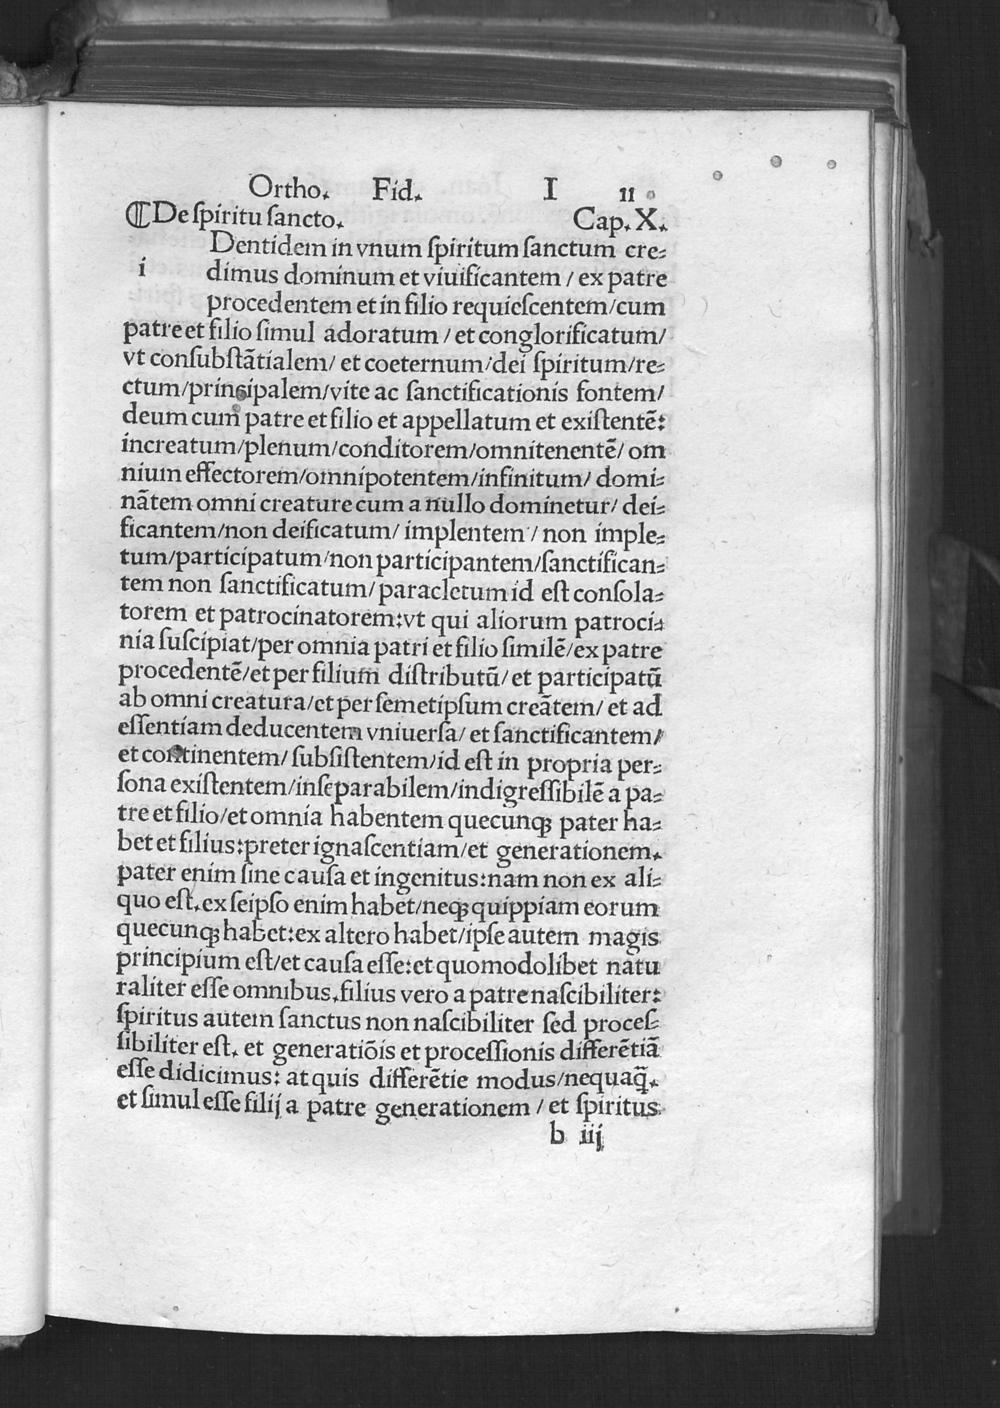 Ortho. Fid. I 11
¶De ſpiritu ſancto. Cap. X.
Dentidem in vnum ſpiritum ſanctum cre⸗
i dimus dominum et viuificantem / ex patre
procedentem et in filio requieſcentem/cum
patre et filio ſimul adoratum / et conglorificatum/
vt conſubſtãtialem/ et coeternum/dei ſpiritum/re⸗
ctum/principalem/vite ac ſanctificationis fontem/
deum cum patre et filio et appellatum et exiſtentẽ:
increatum/plenum/conditorem/omnitenentẽ/ om
nium effectorem/omnipotentem/infinitum/ domi⸗
nãtem omni creature cum a nullo dominetur/ dei⸗
ficantem/non deificatum/ implentem / non imple⸗
tum/participatum/non participantem/ſanctifican⸗
tem non ſanctificatum/paracletum id eſt conſola⸗
torem et patrocinatorem:vt qui aliorum patroci⸗
nia ſuſcipiat/per omnia patri et filio ſimilẽ/ex patre
procedentẽ/et per filium diſtributũ/ et participatũ
ab omni creatura/et per ſemetipſum creãtem/ et ad
eſſentiam deducentem vniuerſa/ et ſanctificantem/
et continentem/ ſubſiſtentem/id eſt in propria per⸗
ſona exiſtentem/inſeparabilem/indigreſſibilẽ a pa⸗
tre et filio/et omnia habentem quecunqꝫ pater ha⸗
bet et filius:preter ignaſcentiam/et generationem.
pater enim ſine cauſa et ingenitus:nam non ex ali⸗
quo eſt.ex ſeipſo enim habet/neqꝫ quippiam eorum
quecunqꝫ habet:ex altero habet/ipſe autem magis
principium eſt/et cauſa eſſe:et quomodolibet natu
raliter eſſe omnibus.filius vero a patre naſcibiliter:
ſpiritus autem ſanctus non naſcibiliter ſed proceſ⸗
ſibiliter eſt. et generatiõis et proceſſionis differẽtiã
eſſe didicimus: at quis differẽtie modus/nequaq̃.
et ſimul eſſe filij a patre generationem / et ſpiritus
b iij